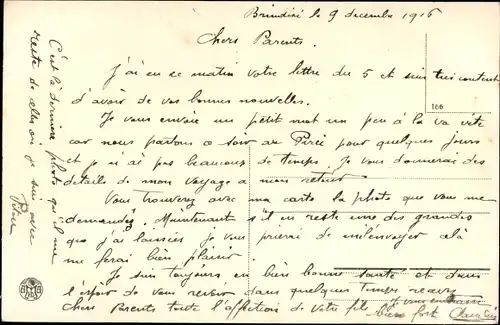 Brindisi le 9 decembre 1916
Chers Parents.
J'ai eu ce matin votre lettre du 5 et suis tres content
d'avoir de vos bonnes nouvelles.
Je vous envoie un petit mot un peu à la va vite
car nous partons ce soir au Pirée pour quelques jours
et je n'ai pas beaucoup de temps. Je vous donnerai des
détails de mon voyage a mon retour
Vous trouverez avec ma carte la photo que vous me
demandés. Maintenant s'il en reste une des grandes
que j'ai laissées, je vous prierai de m'envoyer celà
me ferai bien plaisir
Je suis toujours en bien bonne santé et dans
l'espoir de vous revoir dans quelques temps recevez
chers Parents toute l'affection de votre fils
Je vous embrasse
bien fort
166
C'est la derniere photo qu'il me
reste de celles où je suis avec